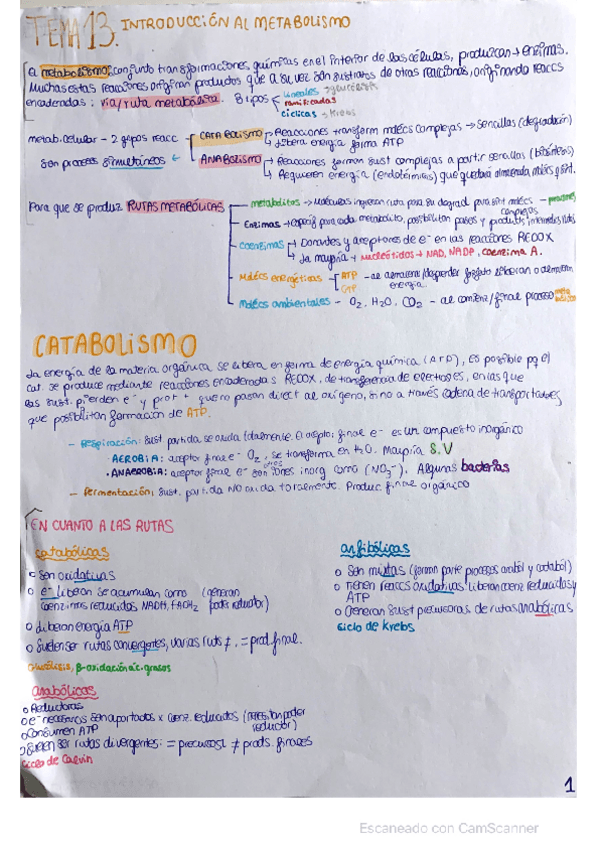 TEMA 13. INTRODUCCIÓN AL METABOLISMO
El metabolismo: conjunto transformaciones químicas en el interior de las células, produzcan → enzimas.
Muchas estas reacciones originan productos que a su vez son sustratos de otras reacciones, originando reaccs
encadenadas: vía/ruta metabólica. 3 tipos
lineales → glucólisis
ramificadas
cíclicas → Krebs
metab. celular - 2 tipos reacc
CATABOLISMO → Reacciones transform molécs complejas → Sencillas (degradación)
→ libera energía forma ATP
son procesos simultáneos ←
ANABOLISMO → Reacciones forman sust complejas a partir sencillas (biosíntesis)
→ Requieren energía (endotérmicas) que quedará almacenada molécs sint.
Para que se produz RUTAS METABÓLICAS
metabolitos → Moléculas ingresan ruta para su degrad para sint molécs
Enzimas → especif para cada metabolito, posibilitan pasos y productos intermedios rutas
complejas
coenzimas → Donantes y aceptores de e- en las reacciones REDOX
→ La mayoría → nucleótidos → NAD, NADP, coenzima A.
Molécs energéticas
ATP
GTP
- al almacenar/desprender fosfato liberan o almacenan
energía.
Molécs ambientales - O2, H2O, CO2 - al comienz/final proceso
CATABOLISMO
La energía de la materia orgánica se libera en forma de energía química (ATP), es posible pq el
cat. se produce mediante reacciones encadenadas REDOX, de transferencia de electrones, en las que
las sust. pierden e- y prot + que no pasan direct al oxígeno, sino a través cadena de transportadores
que posibilitan formación de ATP.
- Respiración: Sust partida, se oxida totalmente. El aceptor final e- es un compuesto inorgánico
· AEROBIA: aceptor final e- O2, se transforma en H2O. Mayoría S.V
· ANAEROBIA: aceptor final e- son otros iones inorg como (NO3-). Algunas bacterias
- Fermentación: Sust. partida NO oxida totalmente. Produc final orgánico
EN CUANTO A LAS RUTAS
catabólicas
o Son oxidativas
o e- liberan se acumulan como (generan
coenzimas reducidos NADH, FADH2 poder reductor)
o Liberan energía ATP
o Suelen ser rutas convergentes, varias ruts ≠, = prod. final.
Glucólisis, β-oxidación ác. grasos
anabólicas
o Reductoras
o e- necesarios son aportados x coenz. reducidos (necesitan poder
reductor)
o Consumen ATP
o Suelen ser rutas divergentes: = precursor ≠ prods. finales
Ciclo de Calvin
anfibólicas
o Son mixtas (forman parte procesos anaból y cataból)
o Tienen reaccs oxidativas liberan coenz reducidas y
ATP
o Generan sust precursoras de rutas anabólicas
Ciclo de Krebs
1
Escaneado con CamScanner